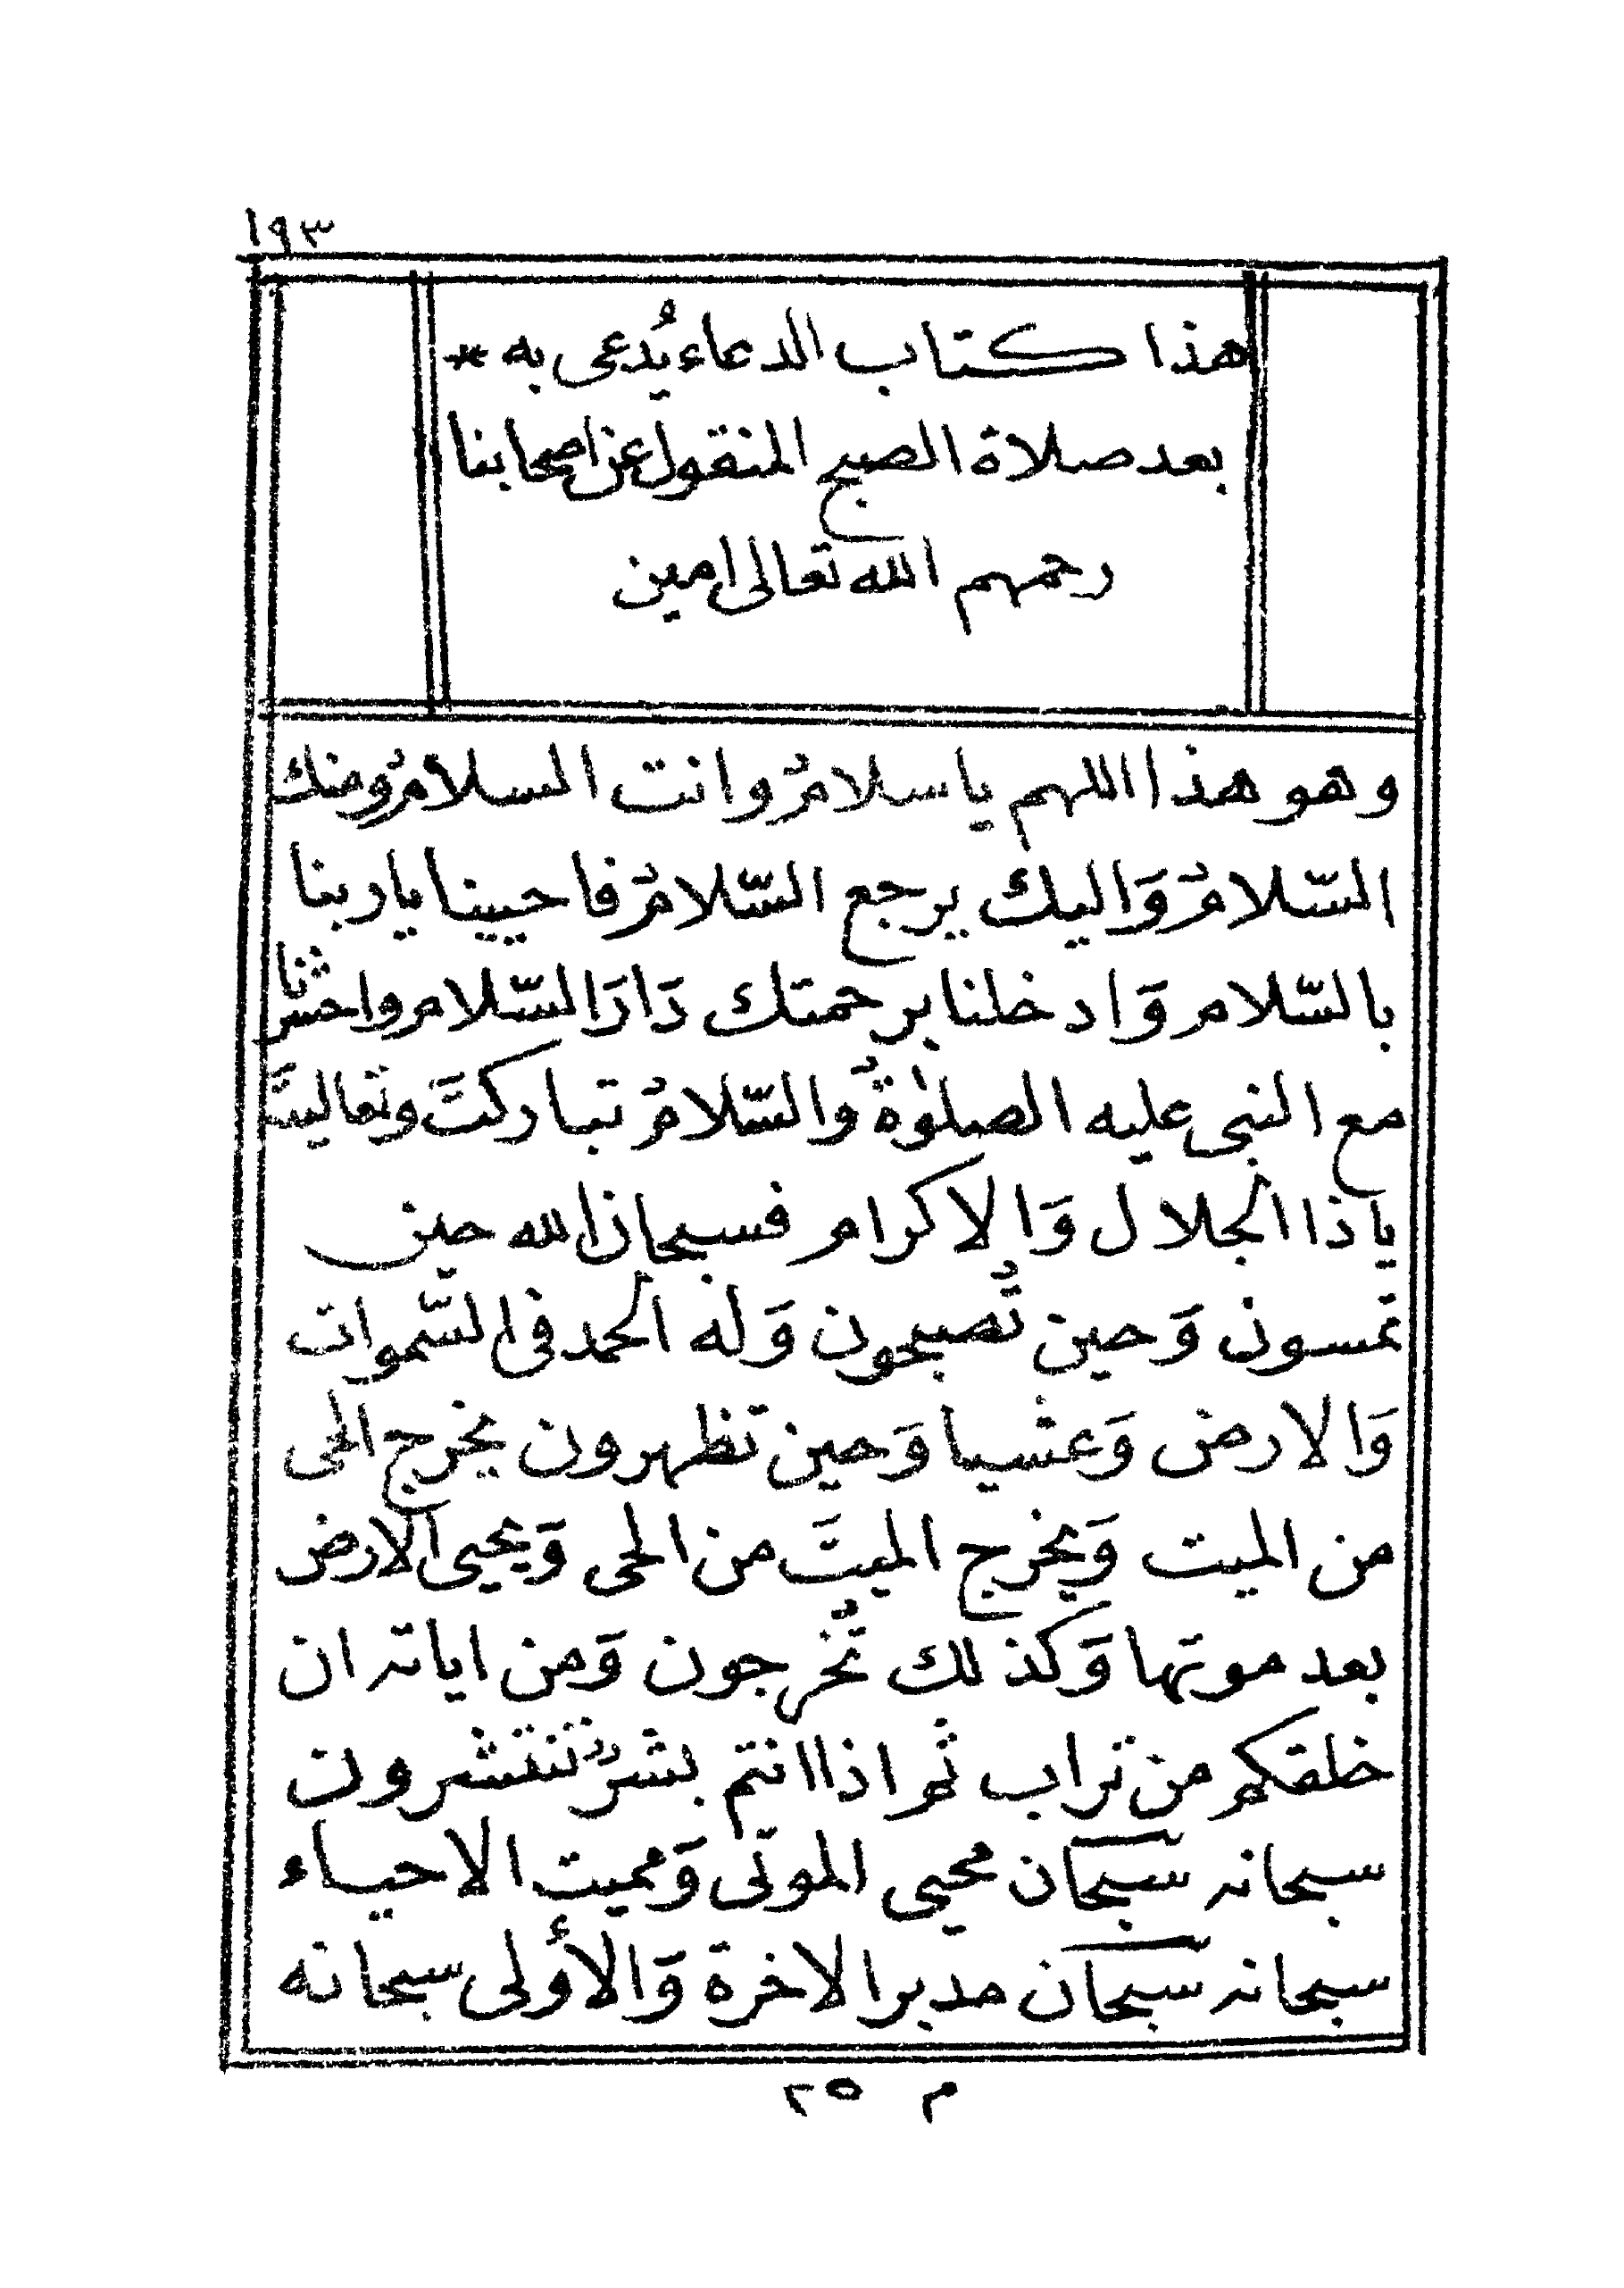 ١٩٣
هذا كتاب الدعاء يُدعى به *
بعد صلاة الصبح المنقول عن اصحابنا
رحمهم الله تعالى امين
وهو هذا اللهم ياسلامُ وانت السلامُ ومنك
السّلامُ وَاليك يرجع السّلامُ فاحيينا ياربنا
بالسّلام وَادخلنا برحمتك دَارَالسّلام واحشرنا
مع النبى عليه الصلوٰةُ والسّلامُ تباركتَ وتعاليتَ
ياذا الجلال وَالاكرام فسبحان الله حين
تمسون وَحين تُصبحون وَله الحمد فى السّموات
وَالارض وَعشيا وَحين تظهرون يخرج الحى
من الميت وَيخرج الميتَ من الحى وَيحيى الارض
بعد موتها وَكذلك تُخرجون وَمن اياته ان
خلقكم من تراب ثم اذا انتم بشرٌ تنتشرون
سبحانه سبحان محيى الموتى وَمميت الاحياء
سبحانه سبحان مدبر الاخرة وَالأولى سبحانه
م ٢٥